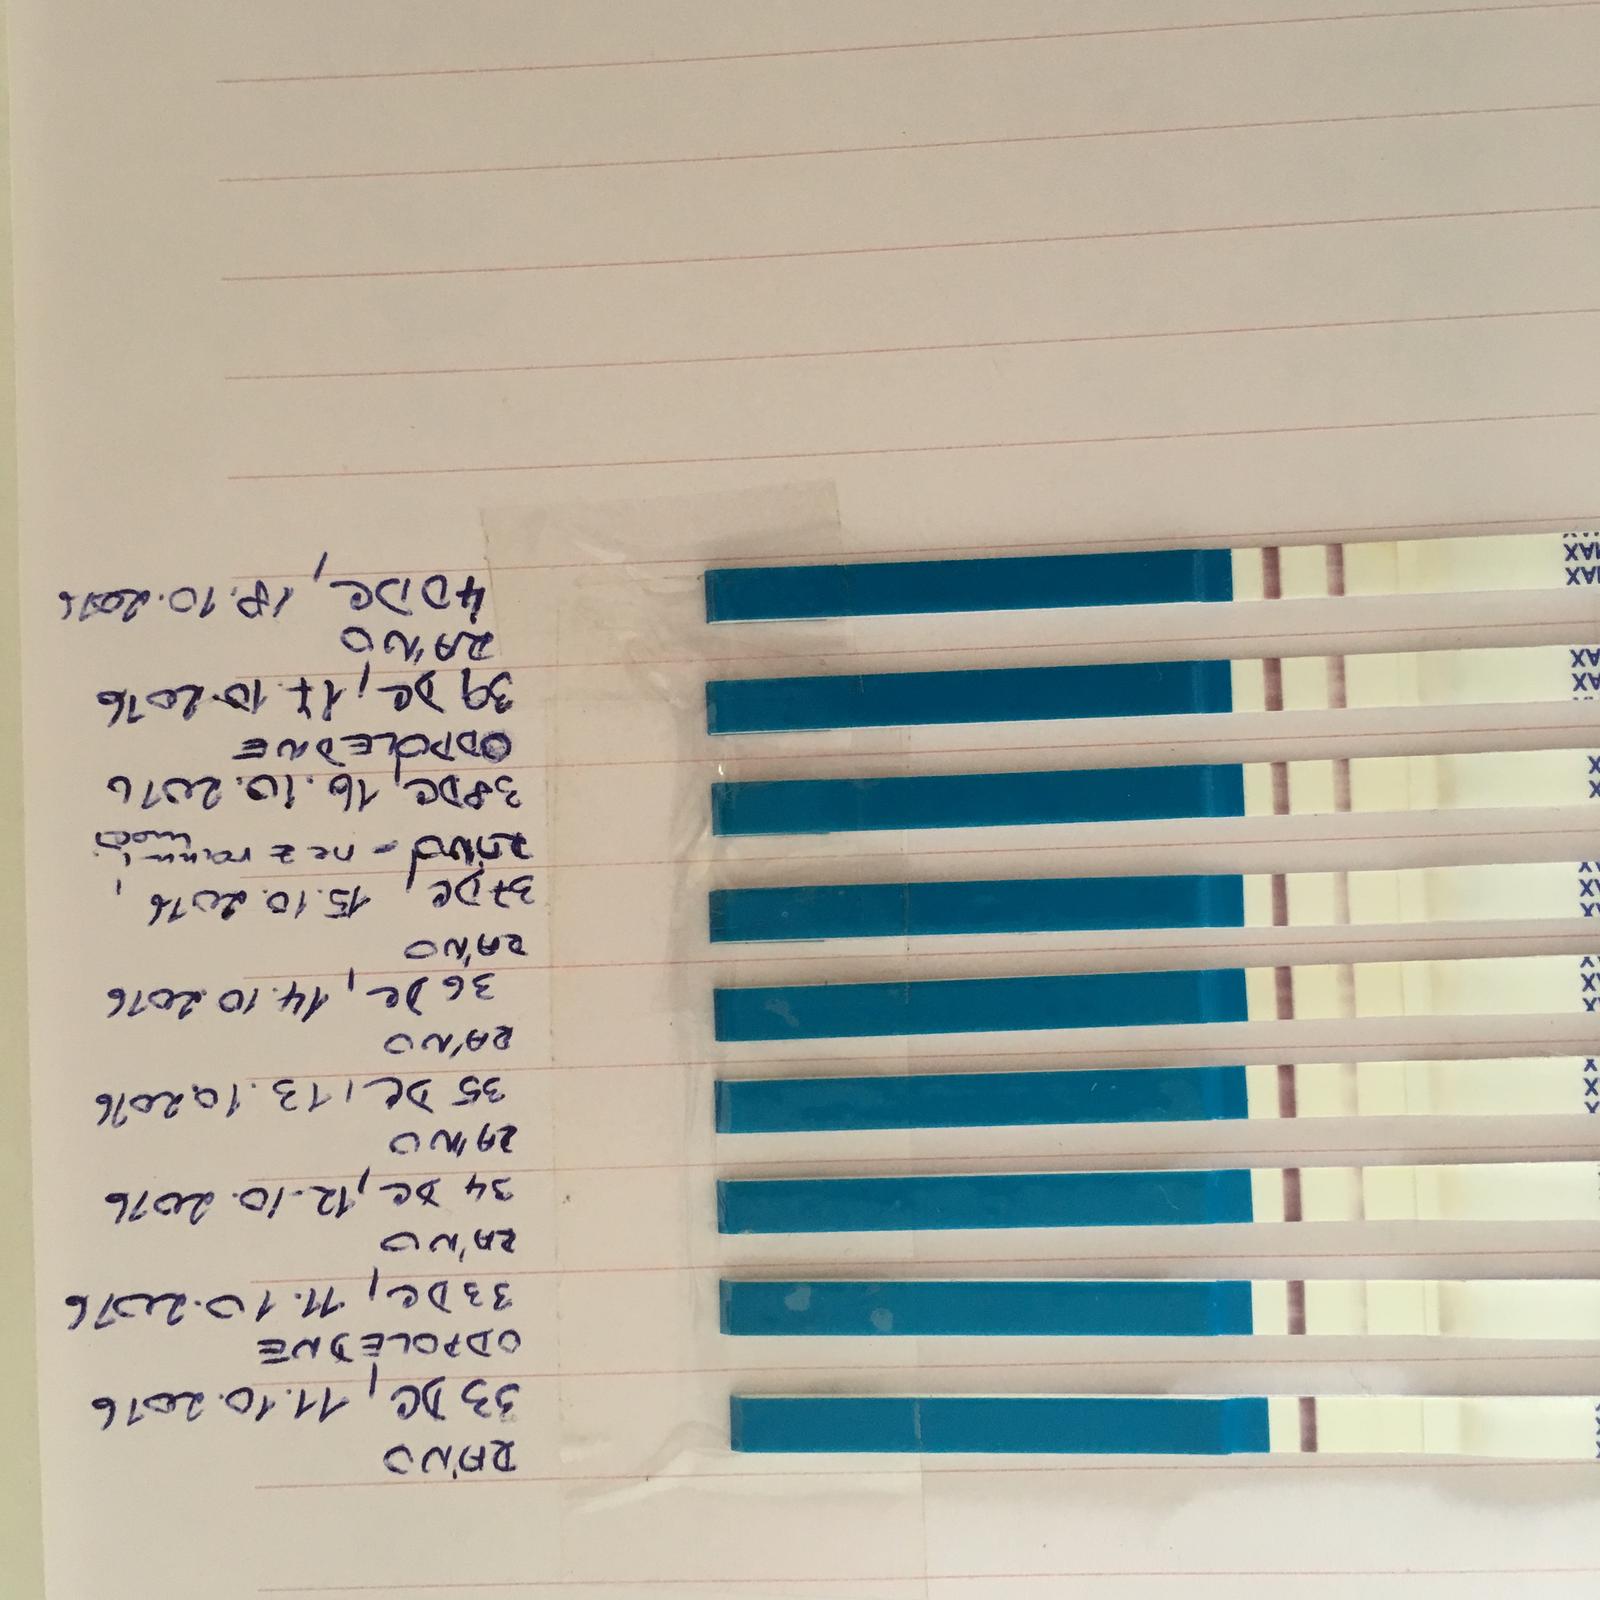 RÁNO
33 DC, 11.10.2016
ODPOLEDNE
33 DC, 11.10.2016
RÁNO
34 DC, 12.10.2016
RÁNO
35 DC, 13.10.2016
RÁNO
36 DC, 14.10.2016
RÁNO
37 DC, 15.10.2016,
RÁNO - ne z ranní moči
38 DC, 16.10.2016
ODPOLEDNE
39 DC, 17.10.2016
RÁNO
40 DC, 18.10.2016
MAX
MAX